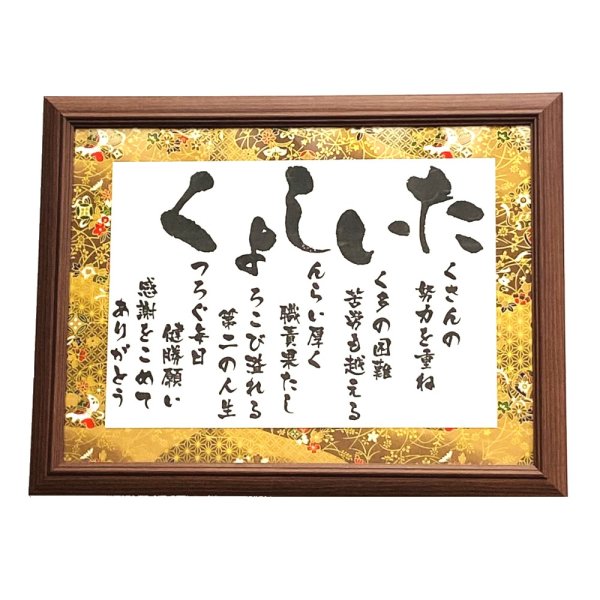 たいしょく
くさんの
努力を重ね
く多の困難
苦労も越える
んらい厚く
職責果たし
ろこび溢れる
第二の人生
つろぐ毎日
健勝願い
感謝をこめて
ありがとう